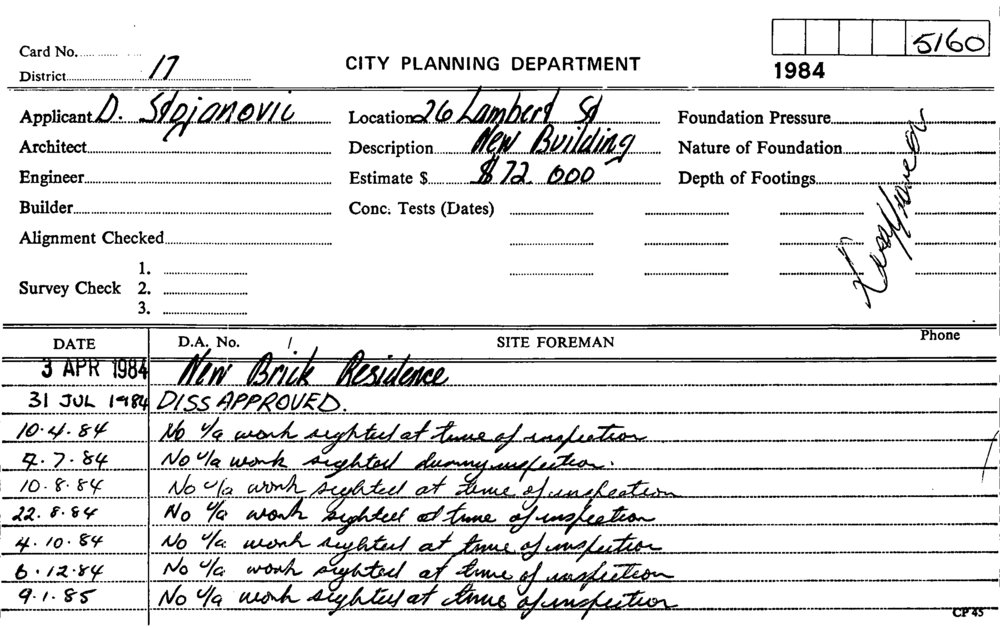 5160
Card No.
CITY PLANNING DEPARTMENT
1984
District 17
Applicant D. Stojanovic Location 26 Lambert St Foundation Pressure
Architect Description New Building Nature of Foundation
Engineer Estimate $ $72.000 Depth of Footings
Builder Conc. Tests (Dates)
Alignment Checked
1.
Survey Check 2.
3.
DATE D.A. No. / SITE FOREMAN Phone
3 APR 1984 New Brick Residence
31 JUL 1984 DISSAPPROVED.
10.4.84 No u/a work sighted at time of inspection
4.7.84 No u/a work sighted during inspection.
10.8.84 No u/a work sighted at time of inspection
22.8.84 No u/a work sighted at time of inspection
4.10.84 No u/a work sighted at time of inspection
6.12.84 No u/a work sighted at time of inspection
9.1.85 No u/a work sighted at time of inspection
CP 45